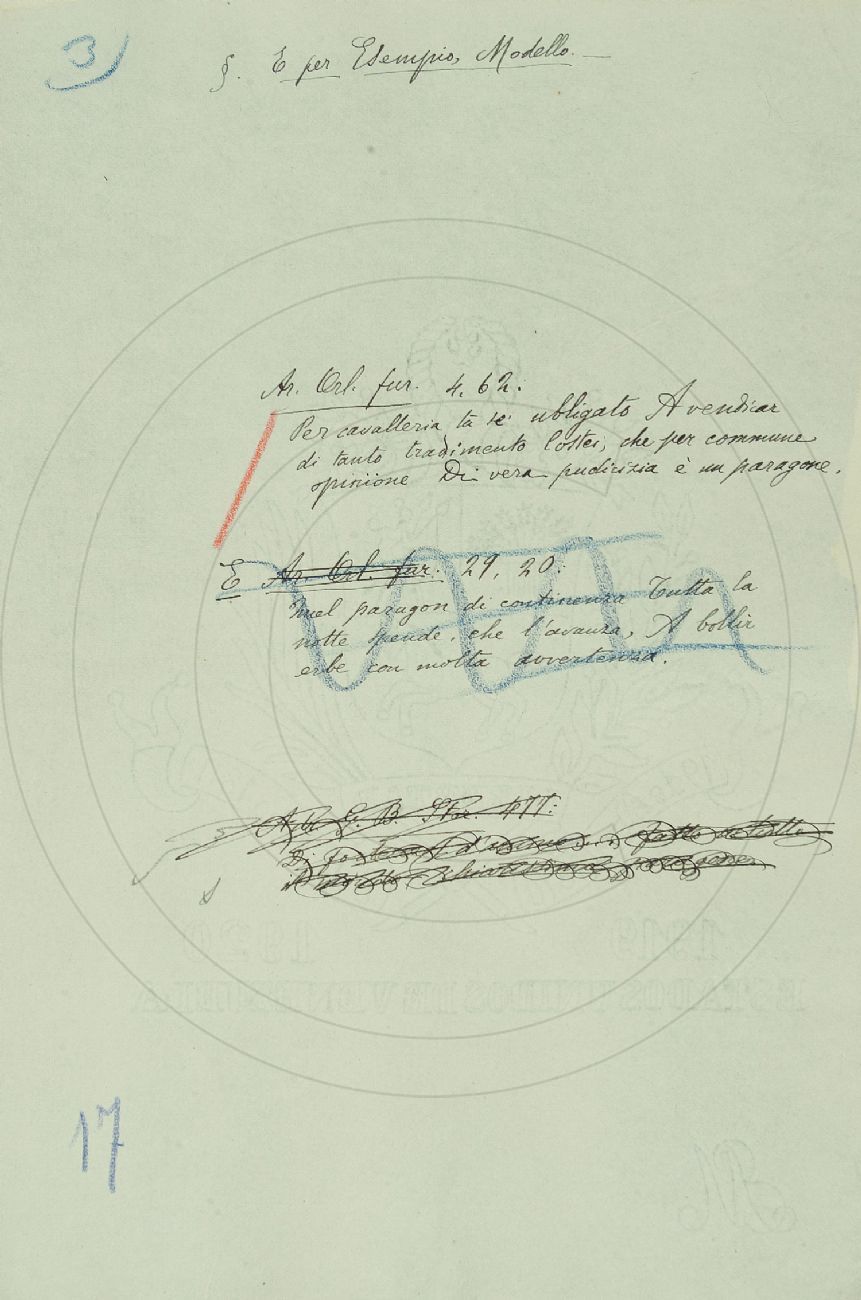 3
§. E per Esempio, Modello. —
Ar. Orl. fur. 4, 62:
Per cavalleria tu se' ubligato A vendicar
di tanto tradimento Costei, che per commune
opinione Di vera pudicizia è un paragone.
E Ar. Orl. fur. 29, 20:
quel paragon di continenza Tutta la
notte spende, che l'avanza, A bollir
erbe con molta avvertenza.
G. B.
17
1919 1920
ESTADOS UNIDOS DE VENEZUELA